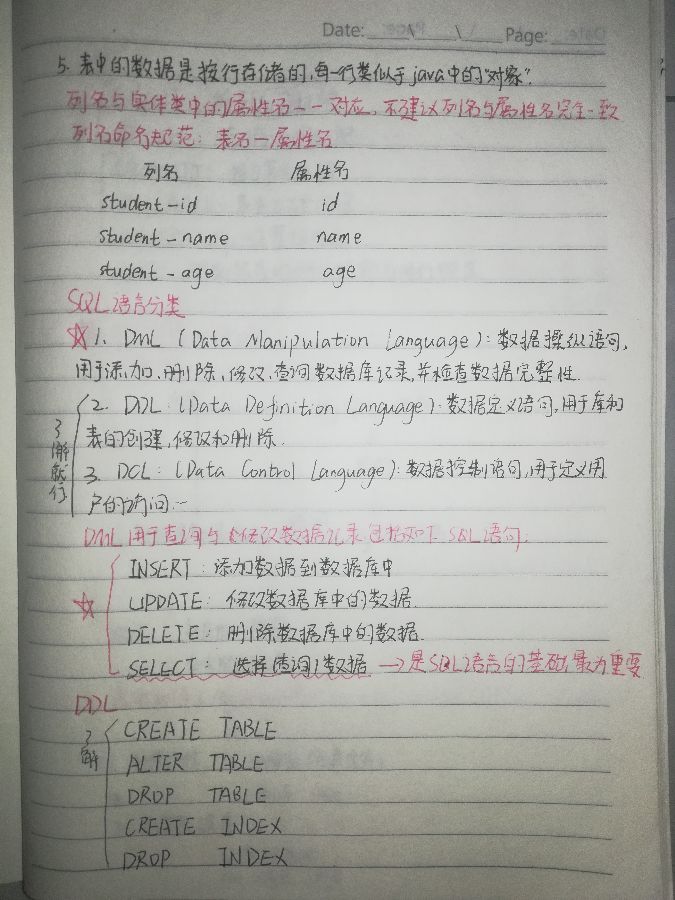 Date: \ \ Page:
5. 表中的数据是按行存储的,每一行类似于java中的"对象".
列名与实体类中的属性名一一对应,不建议列名与属性名完全一致
列名命名规范:表名—属性名
列名 属性名
student-id id
student-name name
student-age age
SQL语言分类
☆1. DML (Data Manipulation Language):数据操纵语句,
用于添加、删除、修改、查询数据库记录,并检查数据完整性.
2. DDL:(Data Definition Language):数据定义语句,用于库和
表的创建,修改和删除.
了解就行
3. DCL:(Data Control Language):数据控制语句,用于定义用
户的访问...
DML用于查询与修改数据记录包括如下SQL语句:
INSERT:添加数据到数据库中
☆ UPDATE:修改数据库中的数据.
DELETE:删除数据库中的数据.
SELECT:选择(查询)数据 →是SQL语言的基础,最为重要
DDL
了解
CREATE TABLE
ALTER TABLE
DROP TABLE
CREATE INDEX
DROP INDEX